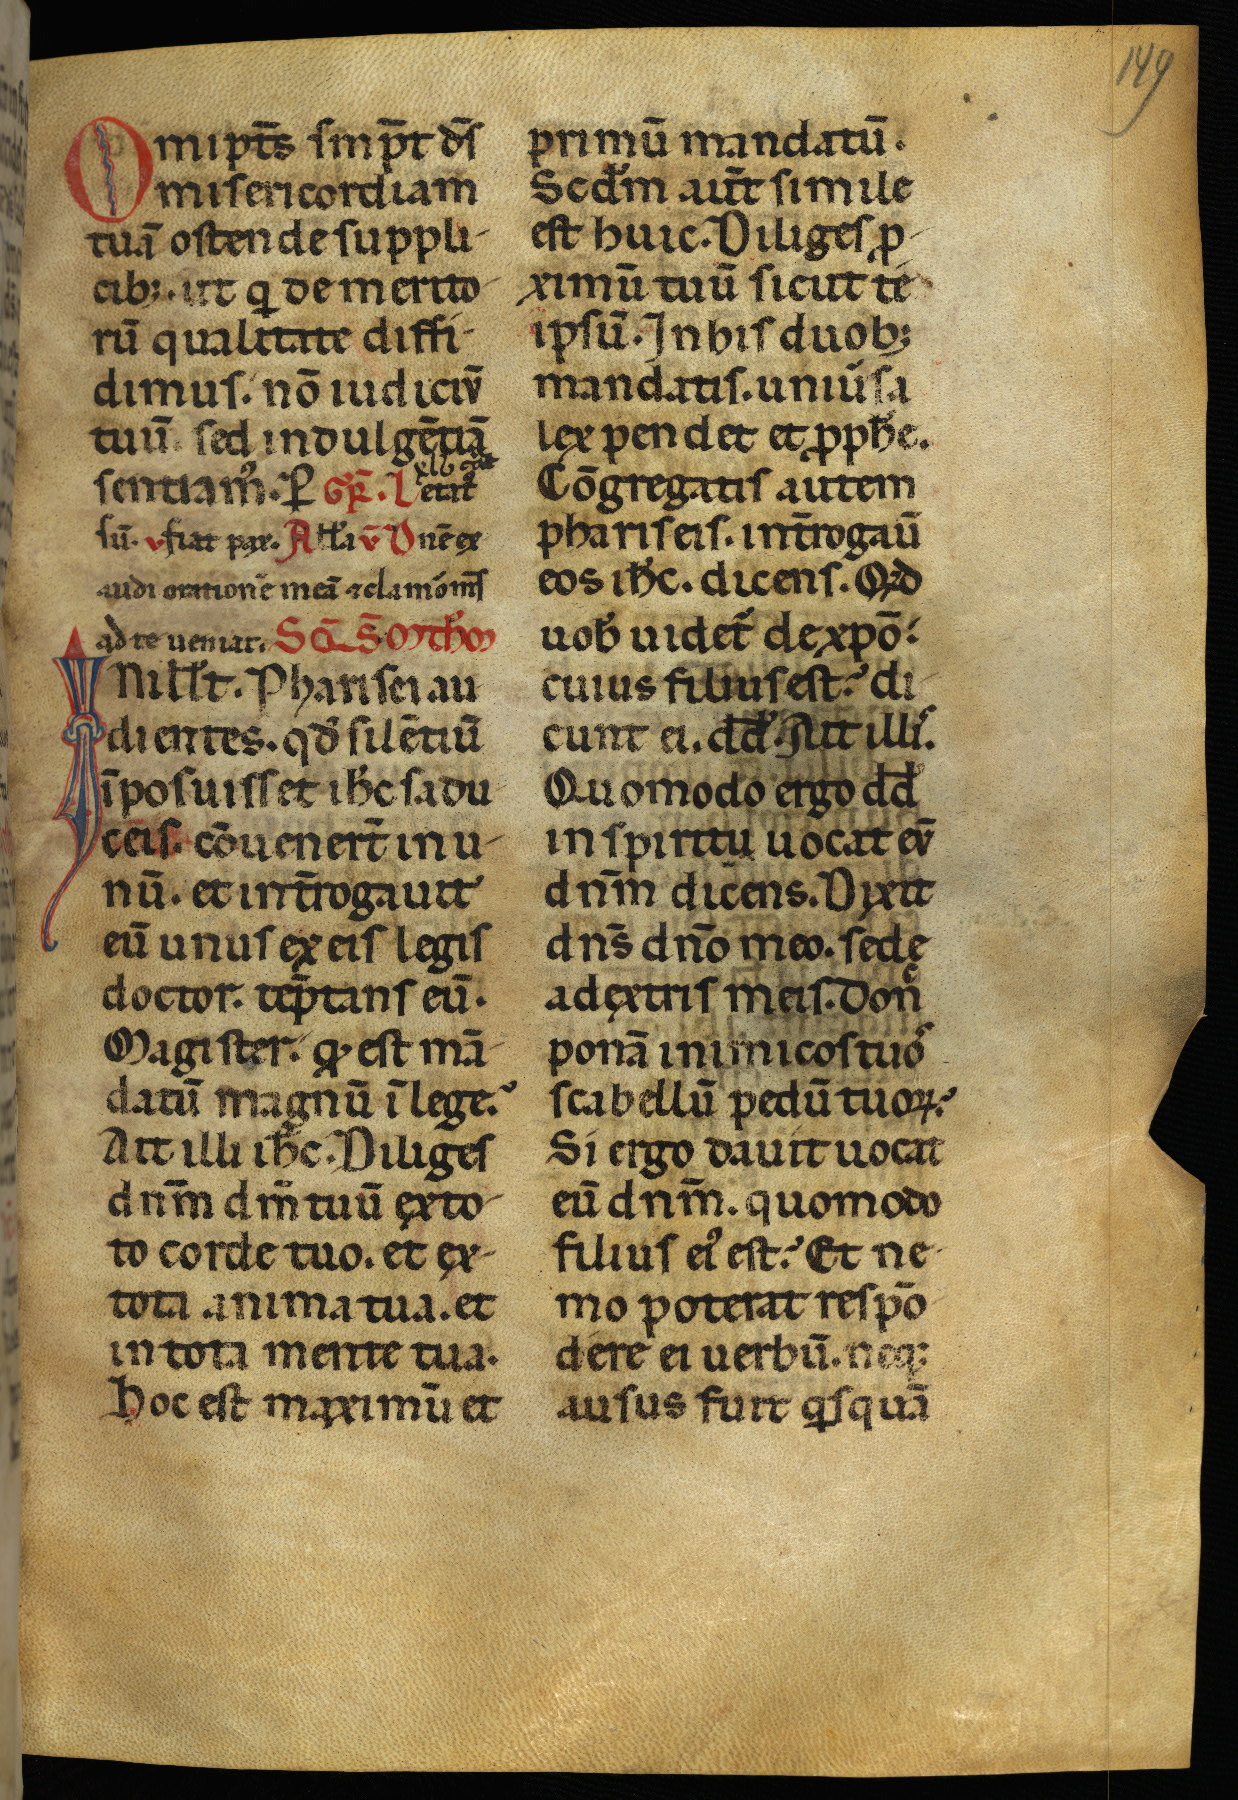 149
Omip̄ts semp̄t ds̄
misericordiam
tuā ostende suppli-
cib;. ut q̇ de merito-
rū qualitate diffi-
dimus. nō iudiciū
tuū. sed indulgētiā
sentiam᷒. P̱ Gr̄. Letat᷒
sū. v̄ fiat pax. Allꝉa v̄ Dn̄e ex
audi orationē meā ⁊ clamor m̄s
ad te ueniat. Sc̄a S. Matheū
In illꝉ t. Pharisei au
dientes. qd̓ silētiū
īposuisset ih̄c sadu
ceis. cōuenert̄ in u-
nū. et int̄rogauit
eū unus ex eis legis
doctor. tēptans eū.
Magister. qḋ est mā
datū magnū ī lege.᾽
Ait illi ih̄c. Diliges
dn̄m dm̄ tuū ex to-
to corde tuo. et ex-
tota anima tua. et
in tota mente tua.
Hoc est maximū et
primū mandatū.
Scdm̄ aut̄ simile
est huic. Diliges ꝓ-
ximū tuū sicut te
ipsū. In his duob;
mandatis. uniūsa
lex pendet et ꝓph̄e.
Cōgregatis autem
phariseis. int̄rogaū
eos ih̄c. dicens. Qd̓
uob̓ uidet᷒ de xp̄o:᾽
cuius filius est.᾽ di-
cunt ei. dd̄. Ait illis.
Quomodo ergo dd̄
in spiritu uocat eū
dn̄m dicens. Dixit
dn̄s dn̄o meo. sede
a dextris meis. Donc̄
ponā inimicos tuos
scabellū pedū tuoꝝ.᾽
Si ergo dauit uocat
eū dn̄m. quomodo
filius ei᷒ est.᾽ Et ne-
mo poterat respō
dere ei uerbū. neq;
ausus fuit qͥsquā